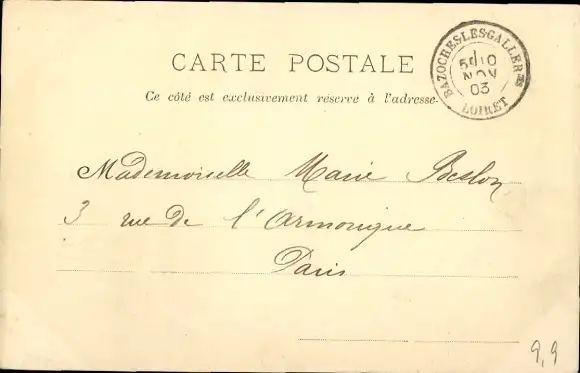 CARTE POSTALE
Ce côté est exclusivement réservé à l'adresse.
BAZOCHES-LES-GALLERES
5E 10
NOV
03
LOIRET
Mademoiselle Marie Beslon
3 rue de l'Armorique
Paris
9,9